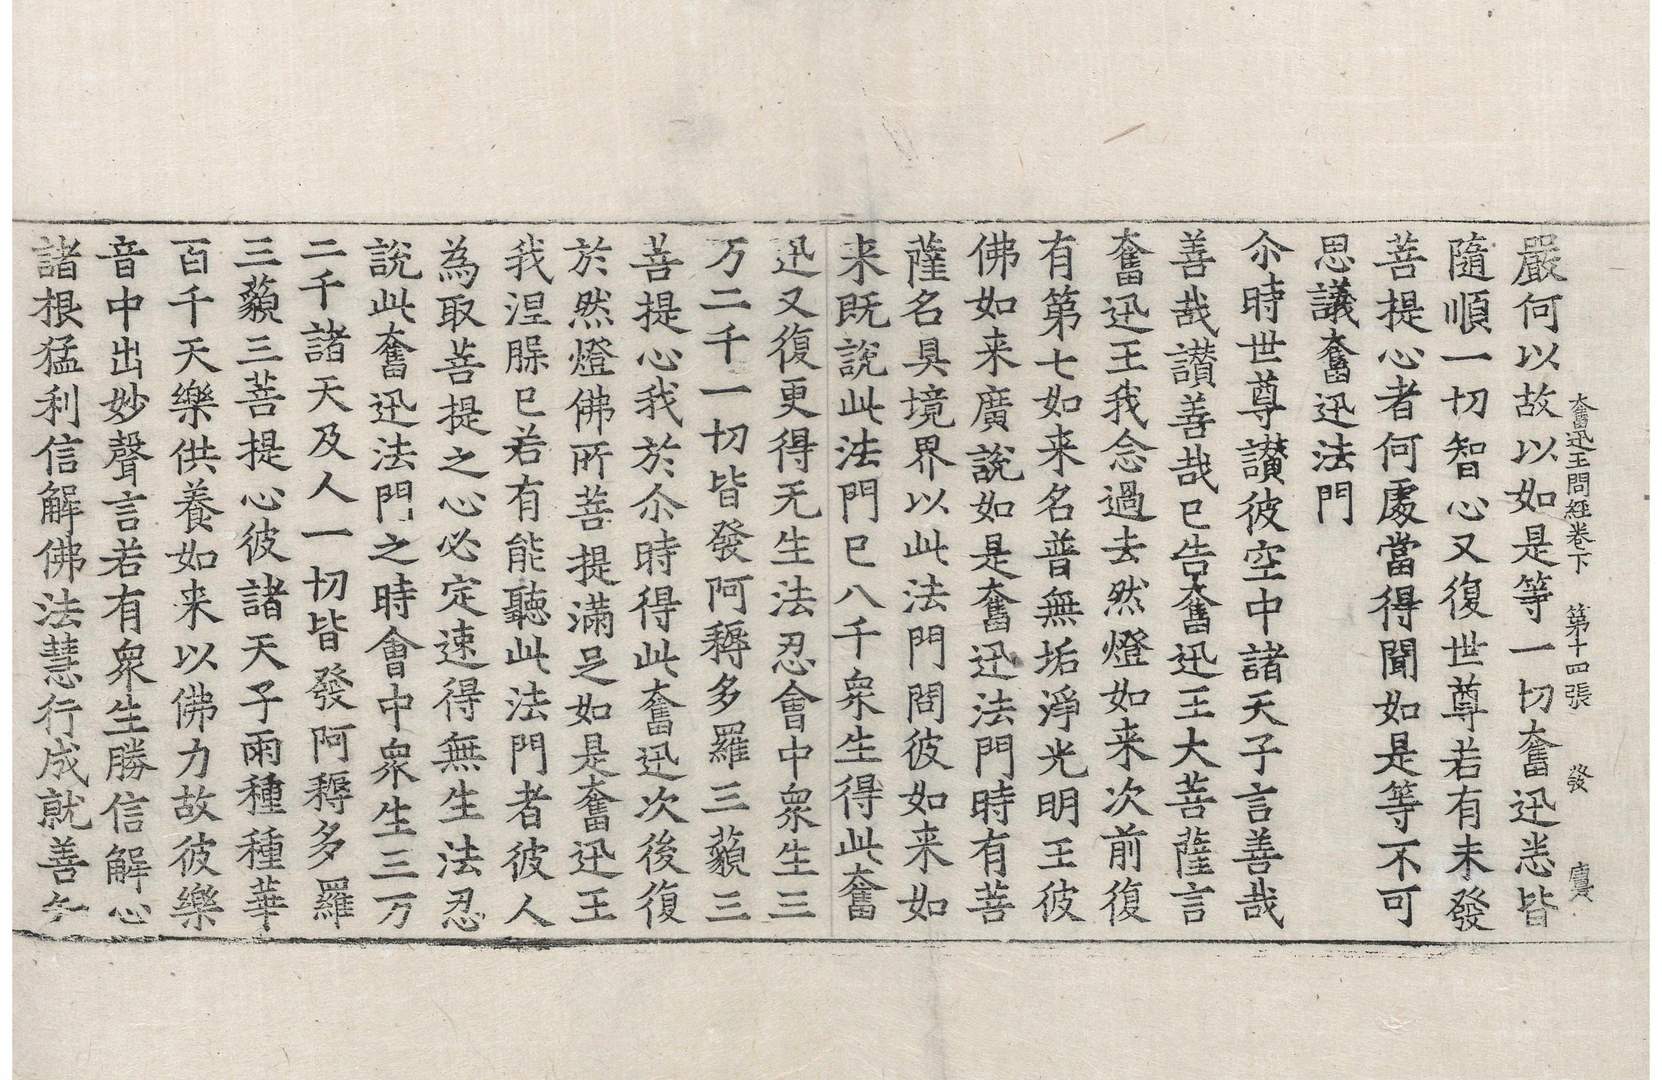 奮迅王問經卷下　第十四張　發
嚴何以故以如是等一切奮迅悉皆
隨順一切智心又復世尊若有未發
菩提心者何處當得聞如是等不可
思議奮迅法門
尒時世尊讃彼空中諸天子言善哉
善哉讃善哉已告奮迅王大菩薩言
奮迅王我念過去然燈如来次前復
有第七如来名普無垢淨光明王彼
佛如来廣說如是奮迅法門時有菩
薩名具境界以此法門問彼如来如
来既說此法門已八千衆生得此奮
迅又復更得无生法忍會中衆生三
万二千一切皆發阿耨多羅三藐三
菩提心我於尒時得此奮迅次後復
於然燈佛所菩提滿足如是奮迅王
我涅槃已若有能聽此法門者彼人
為取菩提之心必定速得無生法忍
說此奮迅法門之時會中衆生三万
二千諸天及人一切皆發阿耨多羅
三藐三菩提心彼諸天子雨種種華
百千天樂供養如来以佛力故彼樂
音中出妙聲言若有衆生勝信解心
諸根猛利信解佛法慧行成就善知